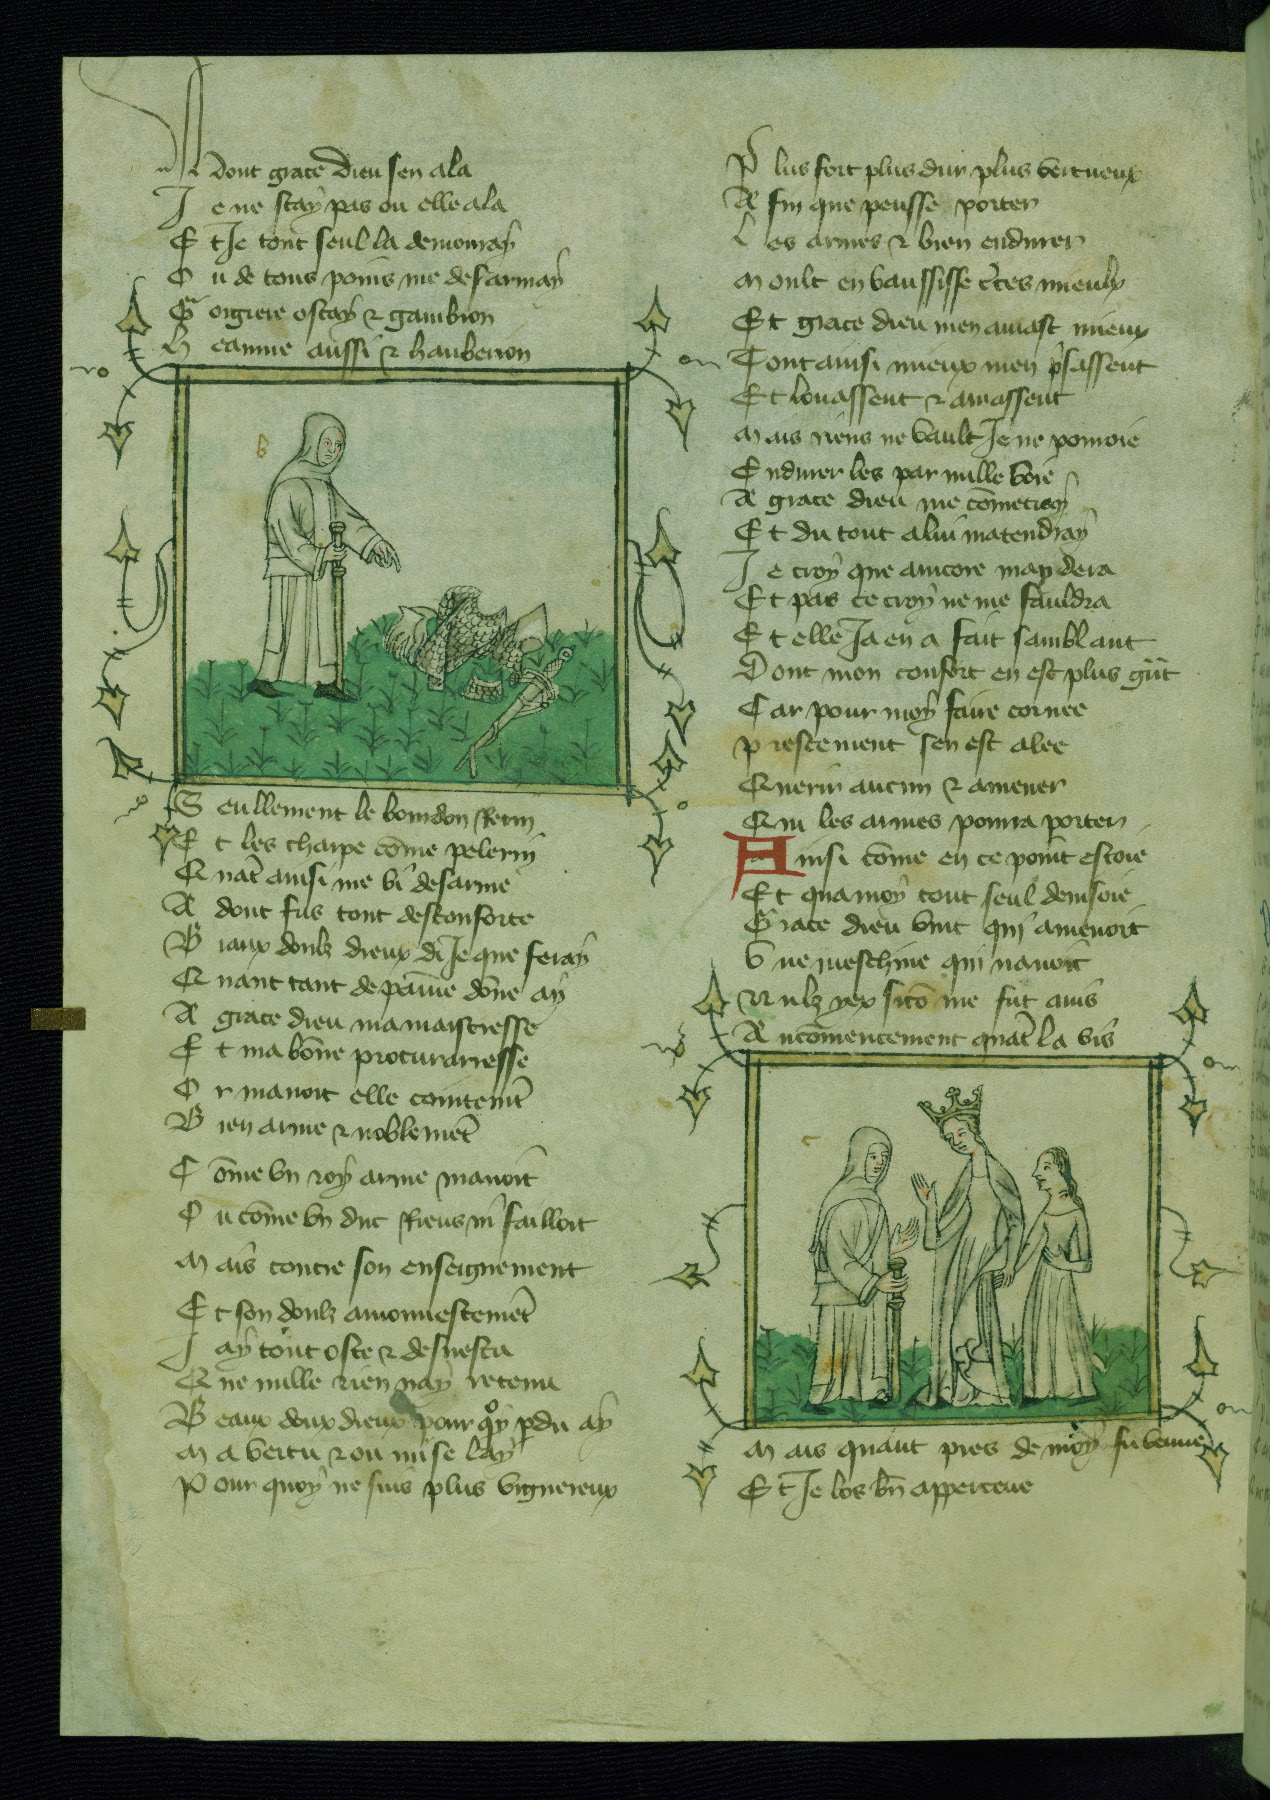 Adont grace Dieu sen ala
Je ne scay pas ou elle ala
Et Je tout seul la demouray
Ou de tous poins me desarmay
Gorgiere ostay & gambion
Heaume aussi & hauberion
Seullement le bourdon Retin
Et les charpe cōme pelerin
Quāt ainsi me vi desarme
Adont fus tout desconforte
Biaux doulz dieux di Je que feray
Quant tant de paine dōne ay
A grace dieu ma maistresse
Et ma bōne procurarresse
Or mauoit elle cointemēt
Bien arme & noblemēt
Cōme vn roy arme mauoit
Ou cōme vn duc Riens ni failloit
Mais contre son enseignement
Et son doulz amonnestemēt
Jay tout oste & desuestu
Que nulle rien nay retenu
Beaux doux dieux pour qoy pdu ay
Ma vertu & ou mise lay
Pour quoy ne suis plus viguereux
Plus fort plus dur plus vertueux
A fin que peusse porter
Les armes & bien endurer
Moult en vaussisse c̄tes mieulx
Et grace dieu men amast mieux
Tout ainsi mieux men p̄sassent
Et louassent & amassent
Mais riens ne vault Je ne pourroie
Endurer les par nulle voie
A grace dieu me cōmetray
Et du tout a lui matendray
Je croy que ancore maydera
Et pas ce croy ne me fauldra
Et elle Ja en a fait samblant
Dont mon confort en est plus g̃nt
Car pour moy faire cornee
Prestement sen est alee
Querir aucun & amener
Qui les armes pourra porter
Ainsi cōme en ce point estoie
Et qua moy tout seul deuisoie
Grace dieu vint qui amenoit
Vne meschine qui nauoit
Nulz yex si cō me fut auis
A ncōmencement quāt la vis
Mais quant pres de moy fu venue
Et Je los bn̄ apperceue